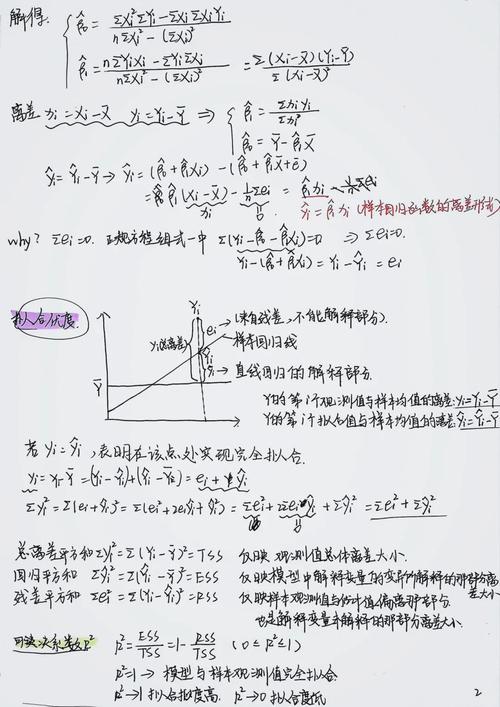 解得: { β̂₀ = (ΣXi²ΣYi-ΣXiΣXiYi)/(nΣXi²-(ΣXi)²)
β̂₁ = (nΣYiXi-ΣYiΣXi)/(nΣXi²-(ΣXi)²) = Σ(Xi-X̄)(Yi-Ȳ)/Σ(Xi-X̄)²
离差 xi=Xi-X̄ yi=Yi-Ȳ ⇒ { β̂₁ = Σxiyi/Σxi²
β̂₀ = Ȳ-β̂₁X̄
ŷi=Ŷi-Ȳ → ŷi=(β̂₀+β̂₁Xi)-(β̂₀+β̂₁X̄+ē)
=β̂₁(Xi-X̄)-1/nΣei = β̂₁xi
xi 0 ŷi=β̂₁xi (样本回归函数的离差形式)
why? Σei=0. 正规方程组式一中 Σ(Yi-β̂₀-β̂₁Xi)=0 ⇒ Σei=0.
Yi-(β̂₀+β̂₁Xi)=Yi-Ŷi=ei
拟合优度
Yi
ei → (来自残差,不能解释部分).
yi(总离差) Ŷi 样本回归线
ŷi → 直线回归的解释部分
Ȳ
Y的第i个观测值与样本均值的离差:yi=Yi-Ȳ
Y的第i个拟合值与样本均值的离差:ŷi=Ŷi-Ȳ
若Yi=Ŷi,表明在该点处实现完全拟合.
yi=Yi-Ȳ=(Yi-Ŷi)+(Ŷi-Ȳ)=ei+ŷi
Σyi²=Σ(ei+ŷi)²=Σ(ei²+2eiŷi+ŷi²)=Σei²+2Σeiŷi+Σŷi²=Σei²+Σŷi²
0
总离差平方和Σyi²=Σ(Yi-Ȳ)²=TSS 反映观测值总体离差大小.
回归平方和 Σŷi²=Σ(Ŷi-Ȳ)²=ESS 反映模型中解释变量的变异所解释的那部分离差大小
残差平方和 Σei²=Σ(Yi-Ŷi)²=RSS 反映样本观测值与估计值偏离那部分.
也是解释变量未解释的那部分离差大小.
可决系数R² R²=ESS/TSS=1-RSS/TSS (0≤R²≤1)
R²=1→模型与样本观测值完全拟合
R²→1 拟合程度高. R²→0 拟合度低
2